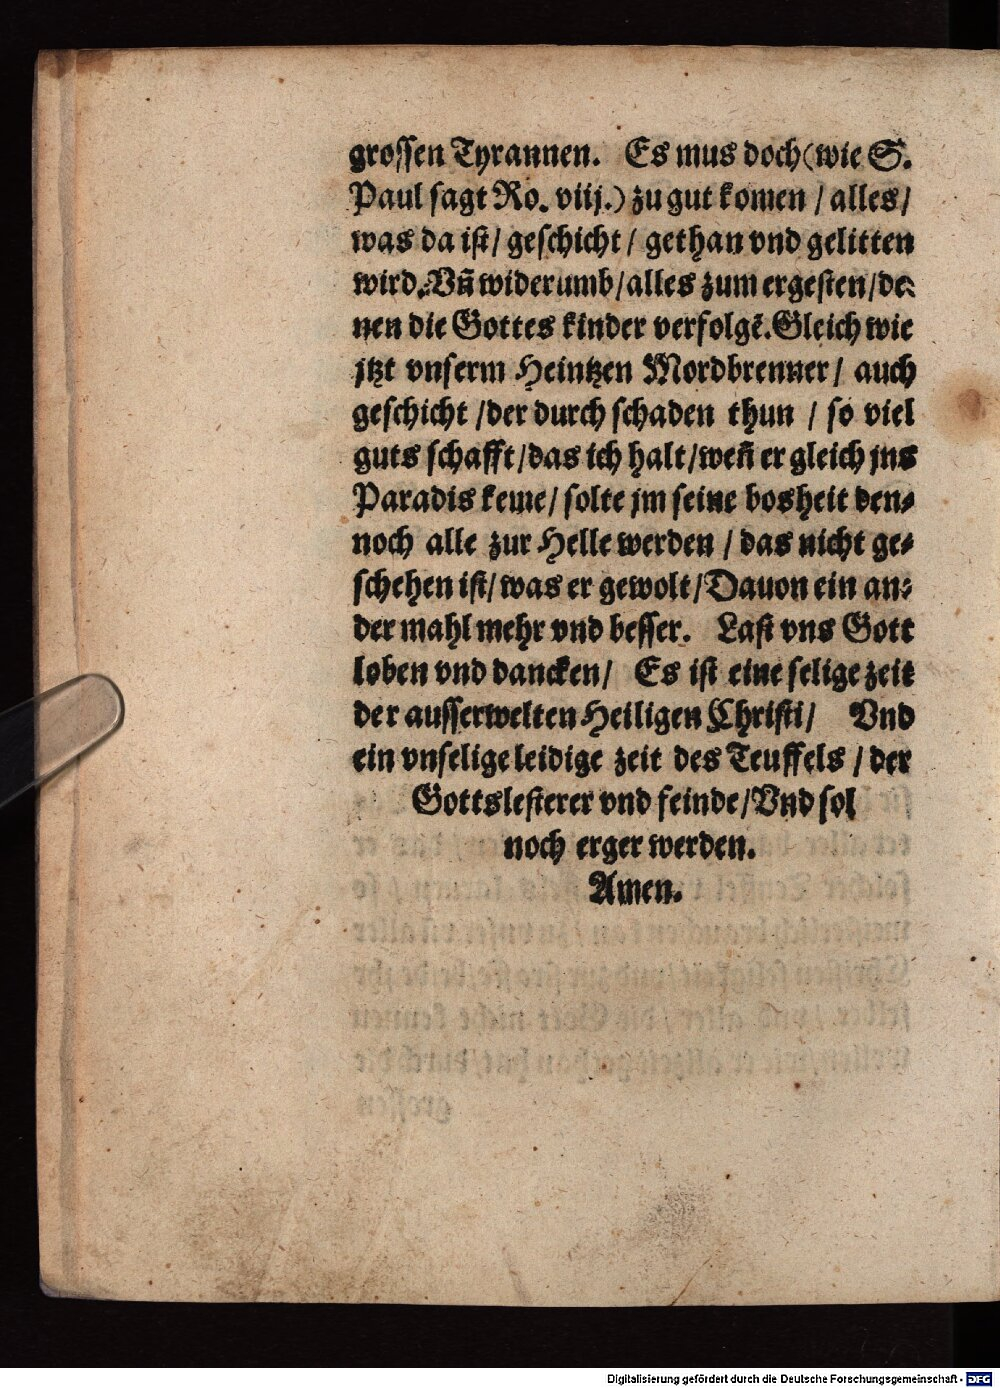 grossen Tyrannen. Es mus doch (wie S.
Paul sagt Ro. viij.) zu gut komen / alles /
was da ist / geschicht / gethan vnd gelitten
wird. Vñ widerumb / alles zum ergesten / de⸗
nen die Gottes kinder verfolgẽ. Gleich wie
jtzt vnserm Heintzen Mordbrenner / auch
geschicht / der durch schaden thun / so viel
guts schafft / das ich halt / weñ er gleich jns
Paradis keme / solte jm seine bosheit den⸗
noch alle zur Helle werden / das nicht ge⸗
schehen ist / was er gewolt / Dauon ein an⸗
der mahl mehr vnd besser. Last vns Gott
loben vnd dancken / Es ist eine selige zeit
der ausserwelten Heiligen Christi / Vnd
ein vnselige leidige zeit des Teuffels / der
Gottslesterer vnd feinde / Vnd sol
noch erger werden.
Amen.
Digitalisierung gefördert durch die Deutsche Forschungsgemeinschaft - DFG